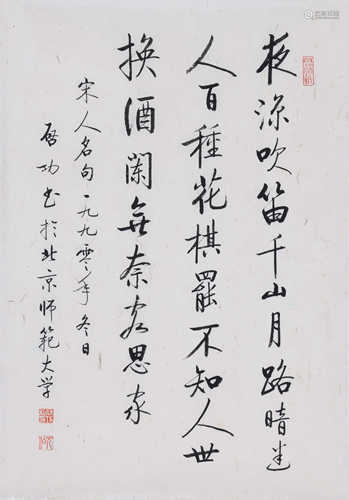 夜涼吹笛千山月路暗迷
人百種花棋罷不知人世
換酒闌無奈客思家
宋人名句一九九零年冬日
啓功书於北京师範大学